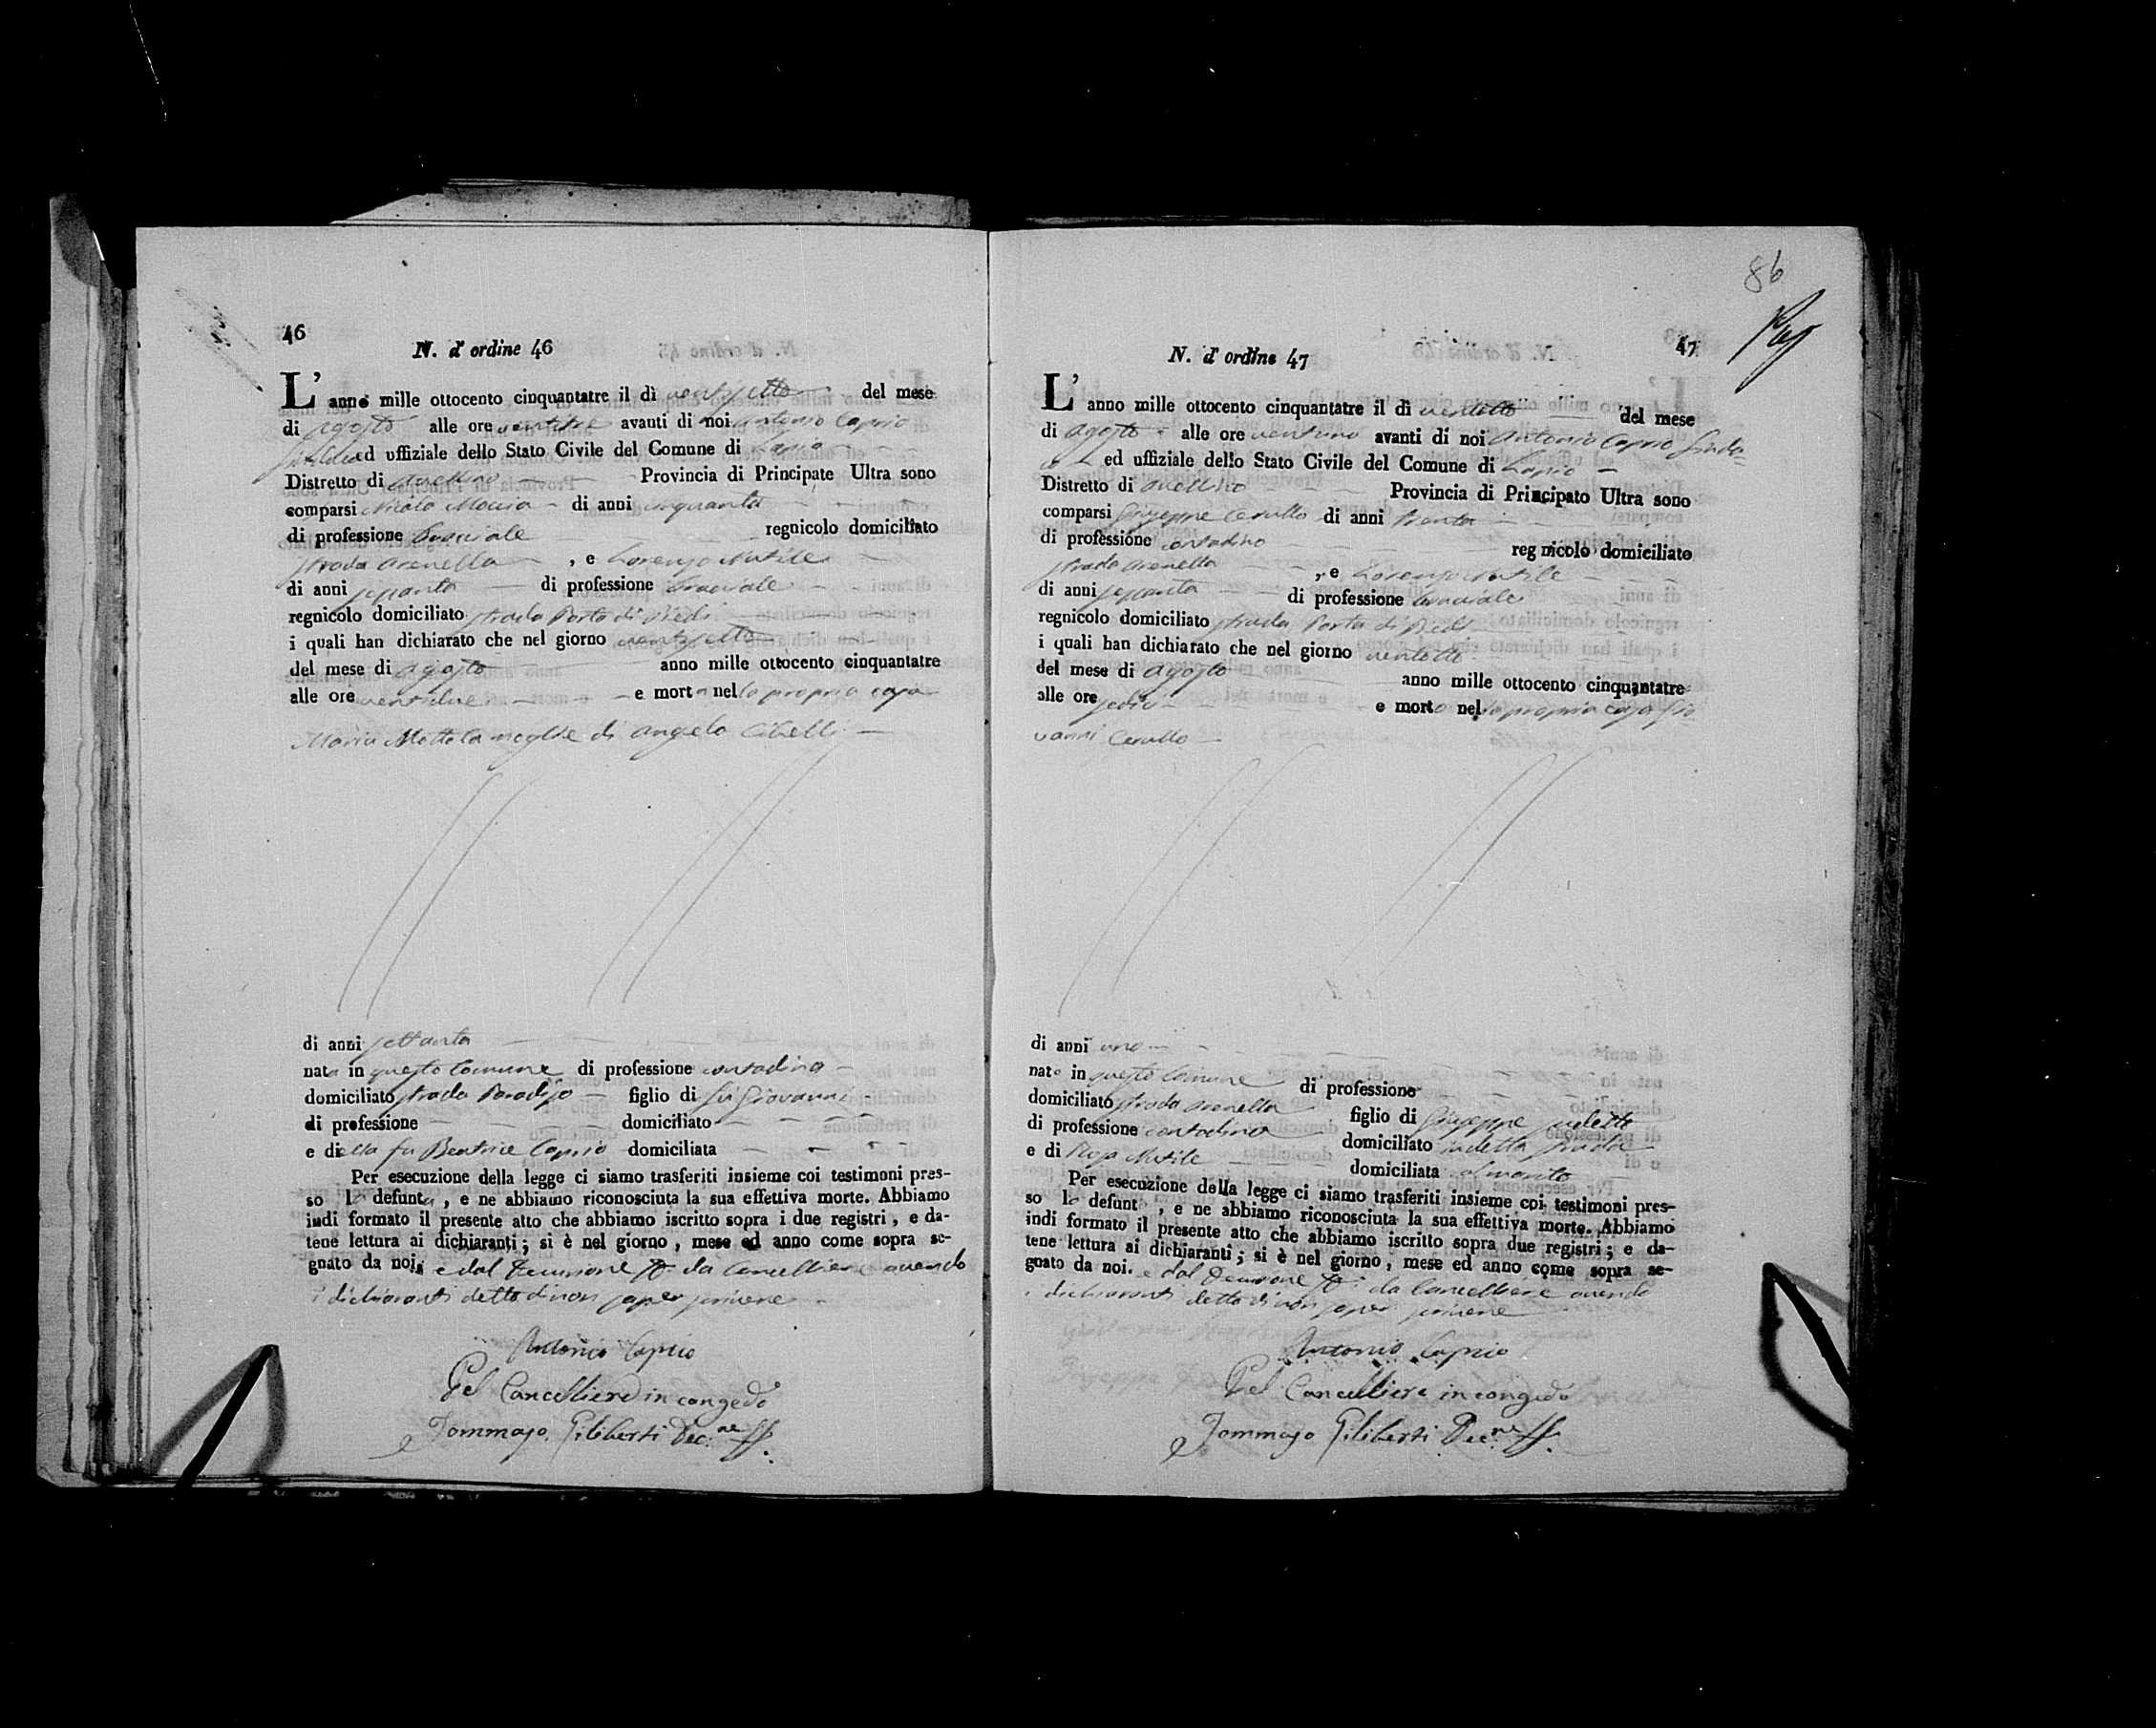 46
N. d'ordine 46
L' anno mille ottocento cinquantatre il dì ventisette del mese
di agosto alle ore ventitre avanti di noi Antonio Caprio
Sindaco ed uffiziale dello Stato Civile del Comune di Lapio
Distretto di Avellino Provincia di Principate Ultra sono
comparsi Nicola di anni cinquanta
di professione bracciale regnicolo domiciliato
strada Arenella , e Lorenzo Nutile
di anni sessanta di professione bracciale
regnicolo domiciliato strada Porta di Piedi
i quali han dichiarato che nel giorno ventisette
del mese di agosto anno mille ottocento cinquantatre
alle ore ventidue e morta nella propria casa
Maria Mottola moglie di Angelo Cibelli
di anni settanta
nata in questo Comune di professione contadina
domiciliato strada Paradiso figlio di fu Giovanni
di professione domiciliato
e di ella fu Beatrice Caprio domiciliata
Per esecuzione della legge ci siamo trasferiti insieme coi testimoni pres-
so la defunta , e ne abbiamo riconosciuta la sua effettiva morte. Abbiamo
indi formato il presente atto che abbiamo iscritto sopra i due registri , e da-
tene lettura ai dichiaranti ; si è nel giorno , mese ed anno come sopra se-
gnato da noi, e dal Decurione ff. da Cancelliere avendo
i dichiaranti detto di non saper scrivere
Antonio Caprio
Pel Cancelliere in congedo
Tommaso Filiberti Dec.ne ff.
86
47
N. d'ordine 47
L' anno mille ottocento cinquantatre il dì ventotto del mese
di agosto alle ore ventuno avanti di noi Antonio Caprio Sinda-
co ed uffiziale dello Stato Civile del Comune di Lapio
Distretto di Avellino Provincia di Principato Ultra sono
comparsi Giuseppe Cerullo di anni trenta
di professione contadino regnicolo domiciliato
strada Arenella , e Lorenzo Nutile
di anni sessanta di professione bracciale
regnicolo domiciliato strada Porta di Piedi
i quali han dichiarato che nel giorno ventotto
del mese di agosto anno mille ottocento cinquantatre
alle ore sedici e morto nella propria casa Gio
vanni Cerullo
di anni uno
nato in questo Comune di professione
domiciliato strada Arenella figlio di Giuseppe sudetto
di professione contadino domiciliato in detta strada
e di Rosa Nutile domiciliata col marito
Per esecuzione della legge ci siamo trasferiti insieme coi testimoni pres-
so lo defunto , e ne abbiamo riconosciuta la sua effettiva morte. Abbiamo
indi formato il presente atto che abbiamo iscritto sopra due registri ; e da-
tene lettura ai dichiaranti ; si è nel giorno , mese ed anno come sopra se-
gnato da noi. e dal Decurione ff. da Cancelliere avendo
i dichiaranti detto di non saper scrivere
Antonio Caprio
Pel Cancelliere in congedo
Tommaso Filiberti Dec.ne ff.